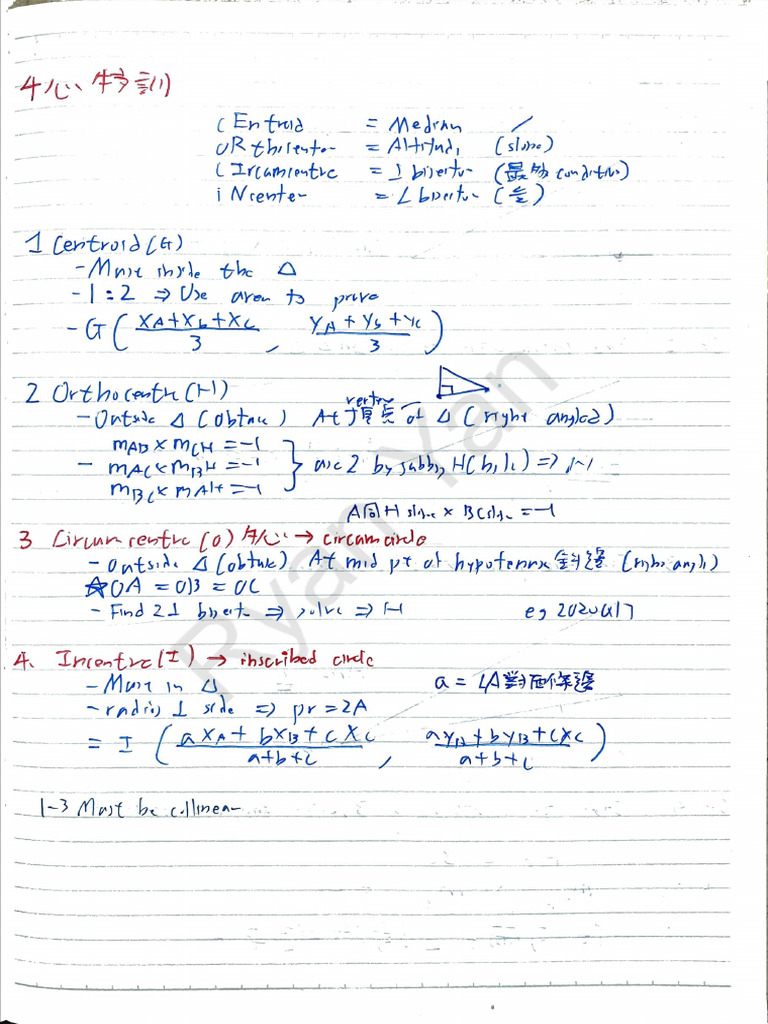 4心特訓
CEntroid = Median
ORthocenter = Altitude (slope)
CIrcumcentre = ⊥ bisector (最多 condition)
iNcenter = ∠ bisector
1 Centroid (G)
- Must inside the Δ
- 1:2 ⇒ Use area to prove
- G ( (xA+xB+xC)/3 , (yA+yB+yC)/3 )
2 Orthocentre (H)
vertex
- Outside Δ (obtuse) At 頂點 of Δ (right angled)
mAB × mCH = -1
- mAC × mBH = -1 } 2 by subbing H(h,k) ⇒
mBC × mAH = -1
A同H slope × BC slope = -1
3 Circumcentre (O) 外心 → circumcircle
- Outside Δ (obtuse) At mid pt of hypotenuse 斜邊 (right angle)
☆ OA = OB = OC
- Find 2 ⊥ bisector ⇒ solve ⇒ H eg 2020 Q17
4. Incentre (I) → inscribed circle
- Must in Δ a = ∠A對面條邊
- radius ⊥ side ⇒ pr = 2A
= I ( (axA + bxB + cxC)/(a+b+c) , (ayB + byB + cxC)/(a+b+c) )
1-3 Must be collinear
Ryan Yan